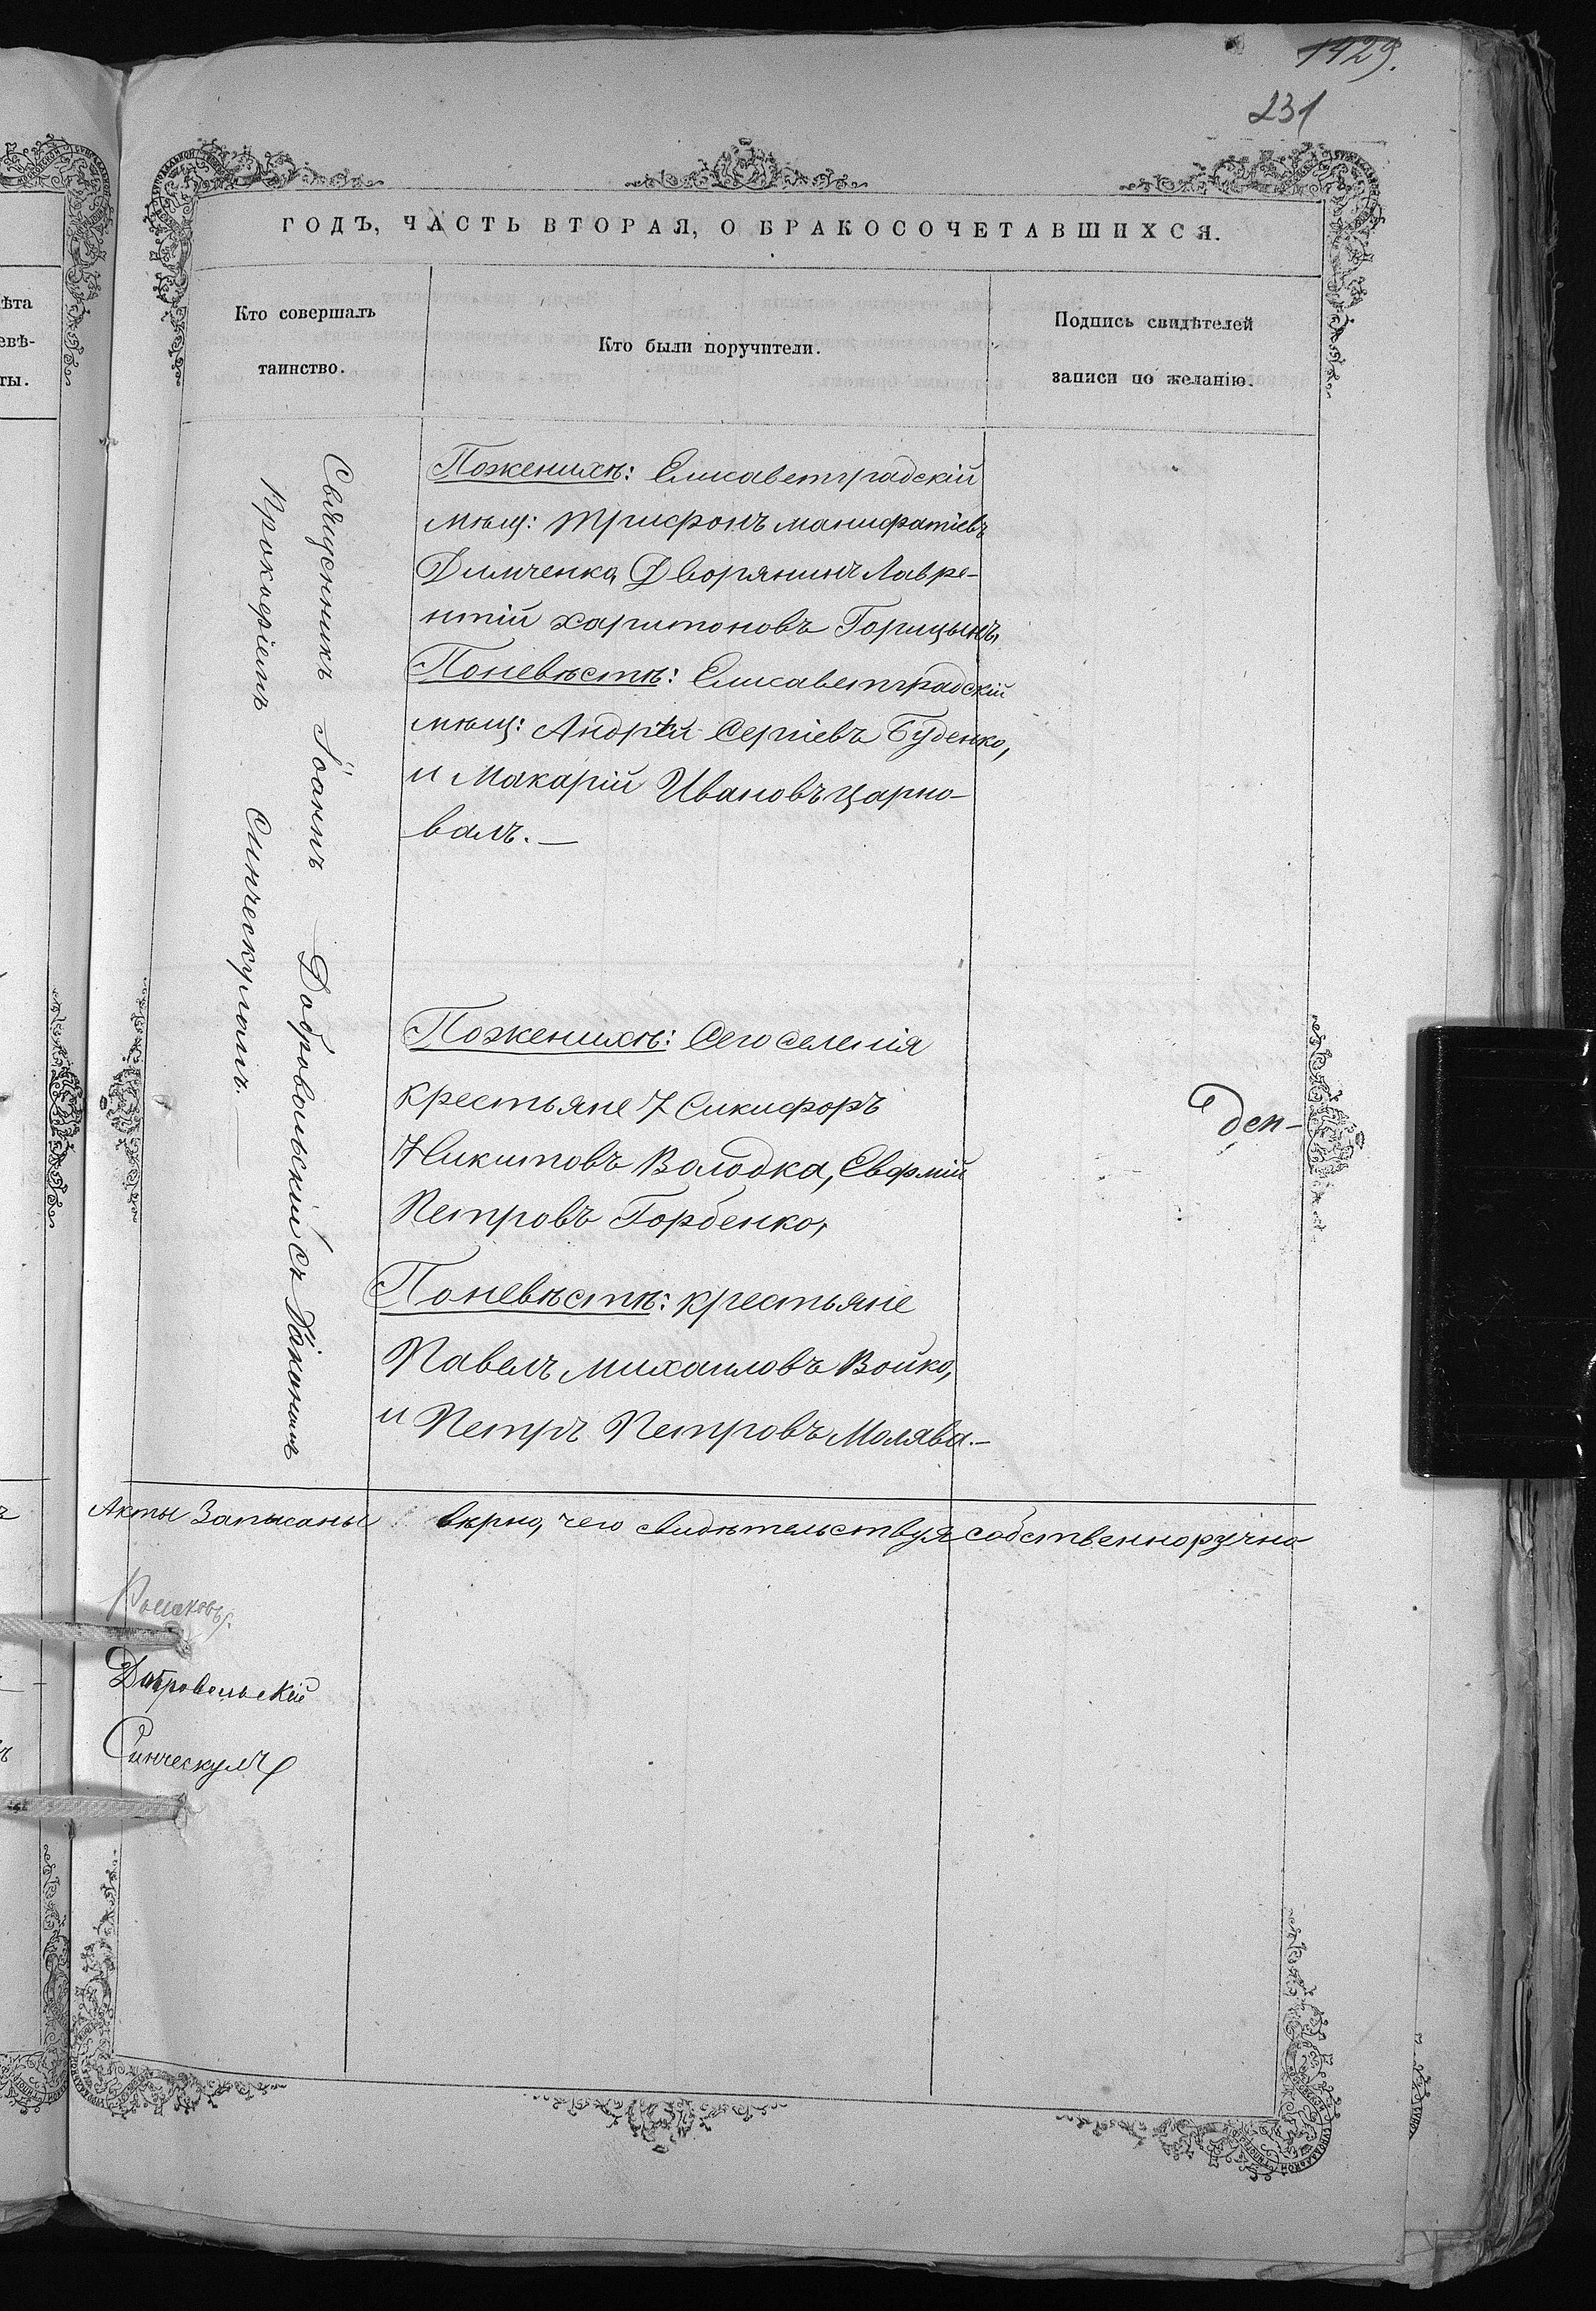 1429.
231
ГОДЪ, ЧАСТЬ ВТОРАЯ, О БРАКОСОЧЕТАВШИХСЯ.
Кто совершалъ
таинство.
Кто были поручители.
Подпись свидѣтелей
записи по желанію.
Священникъ Іоаннъ Добровольскій съ Діакономъ
Прокофіемъ Синческуломъ.
Поженихѣ: Елисаветградскій
мѣщ: Трифонъ Манифатіевъ
Димченко, Дворянинъ Лавре-
нтій Харитоновъ Горицынъ,
Поневѣстѣ: Елисаветградскій
мѣщ: Андрѣй Сергіевъ Буденко,
и Макарій Ивановъ Царно-
валъ.—
Поженихѣ: Сего селенія
крестьяне Никифоръ
Никитовъ Володка, Евфмій
Петровъ Горбенко,
Поневѣстѣ: крестьяне
Павелъ Михаиловъ Бойко,
и Петръ Петровъ Молява.—
Ден-
Акты Записаны вѣрно, чего свидѣтельствуя собственноручно
Добровольскій
Синческулъ
ѣта
евѣ-
ты.